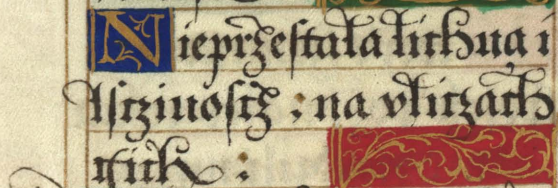 Nieprzestała lichua i
lscziuoscz : na vliczach
gich :